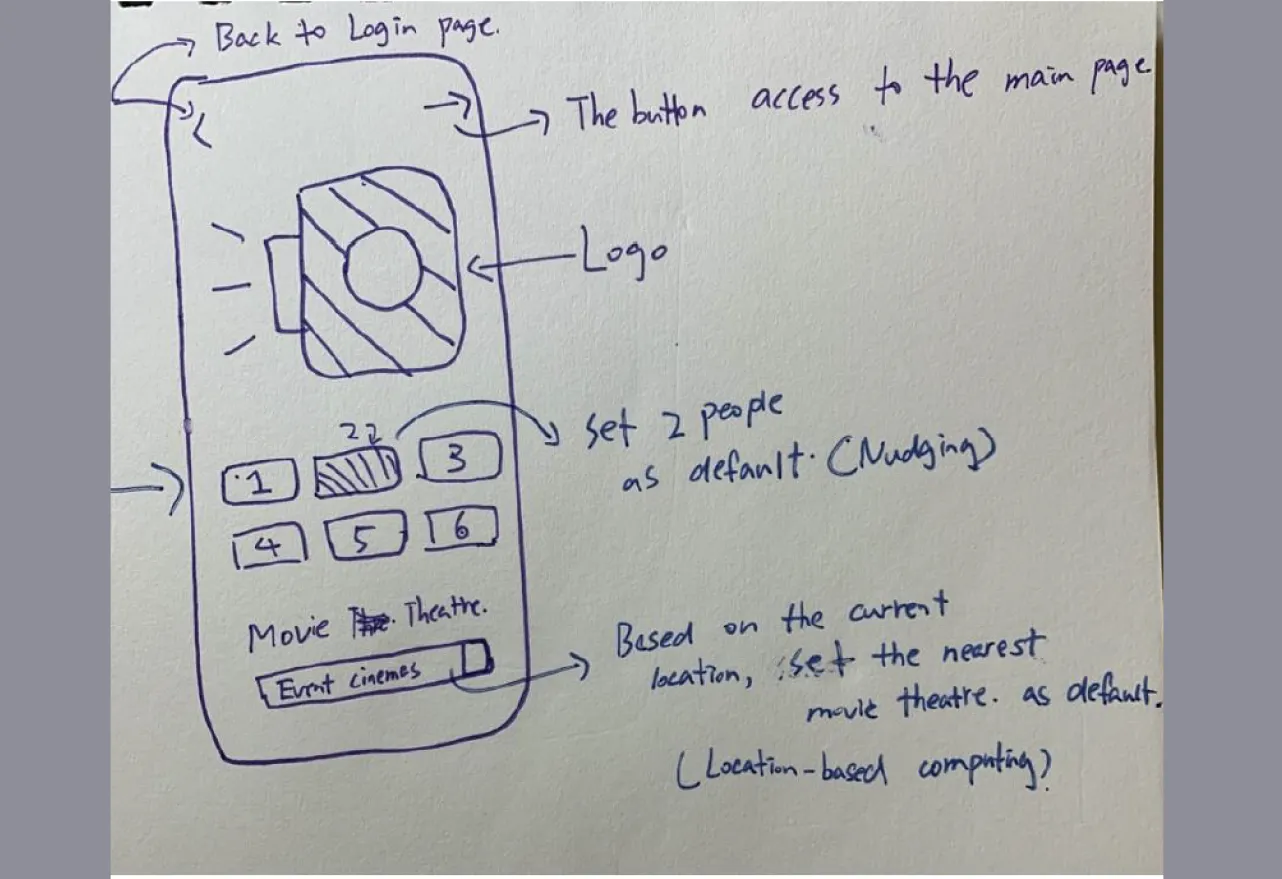 Back to Login page.
The button access to the main page
Logo
set 2 people
as default. (Nudging)
22
1
3
4
5
6
Movie Theatre.
Event cinemas
Based on the current
location, set the nearest
movie theatre. as default.
(Location-based computing)